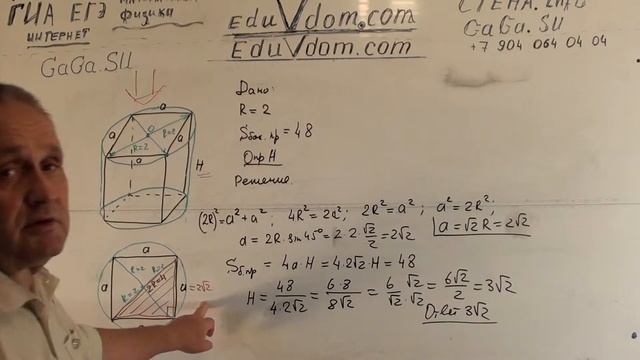 ГИА ЕГЭ
ИНТЕРНЕТ
физика
GaGa.SU
EduVdom.com
EduVdom.com
GaGa.SU
+7 904 064 04 04
Дано:
R = 2
Sбок.пр = 48
Опр H
Решение.
(2R)² = a² + a² ; 4R² = 2a² ; 2R² = a² ; a² = 2R² ;
a = 2R · sin 45° = 2·2·√2/2 = 2√2
a = √2 R = 2√2
Sб.пр = 4a·H = 4·2√2·H = 48
H = 48/(4·2√2) = 6·8/(8√2) = 6/√2 · √2/√2 = 6√2/2 = 3√2
Ответ 3√2
a
a
a
a
R=2
H
a
R=2
a
a = 2√2
2R=4